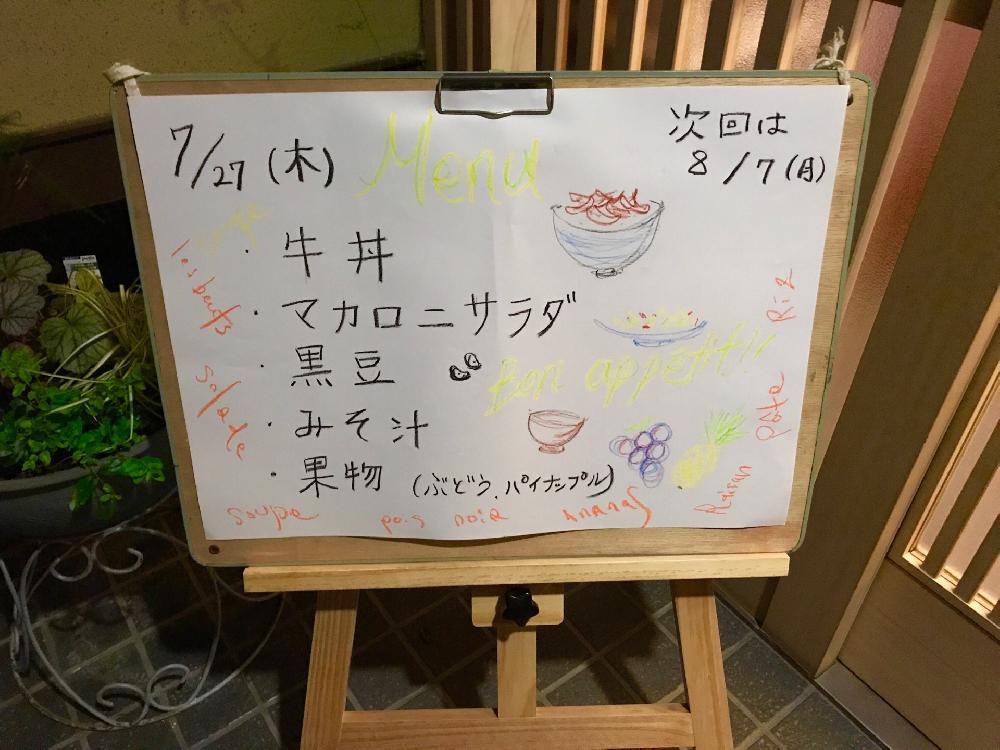 7/27 (木)
Menu
次回は
8/7 (月)
・牛丼
・マカロニサラダ
・黒豆
・みそ汁
・果物 (ぶどう、パイナップル)
Bon appetit!!
salade
Riz
pate
soupe
pois noir
Ananas